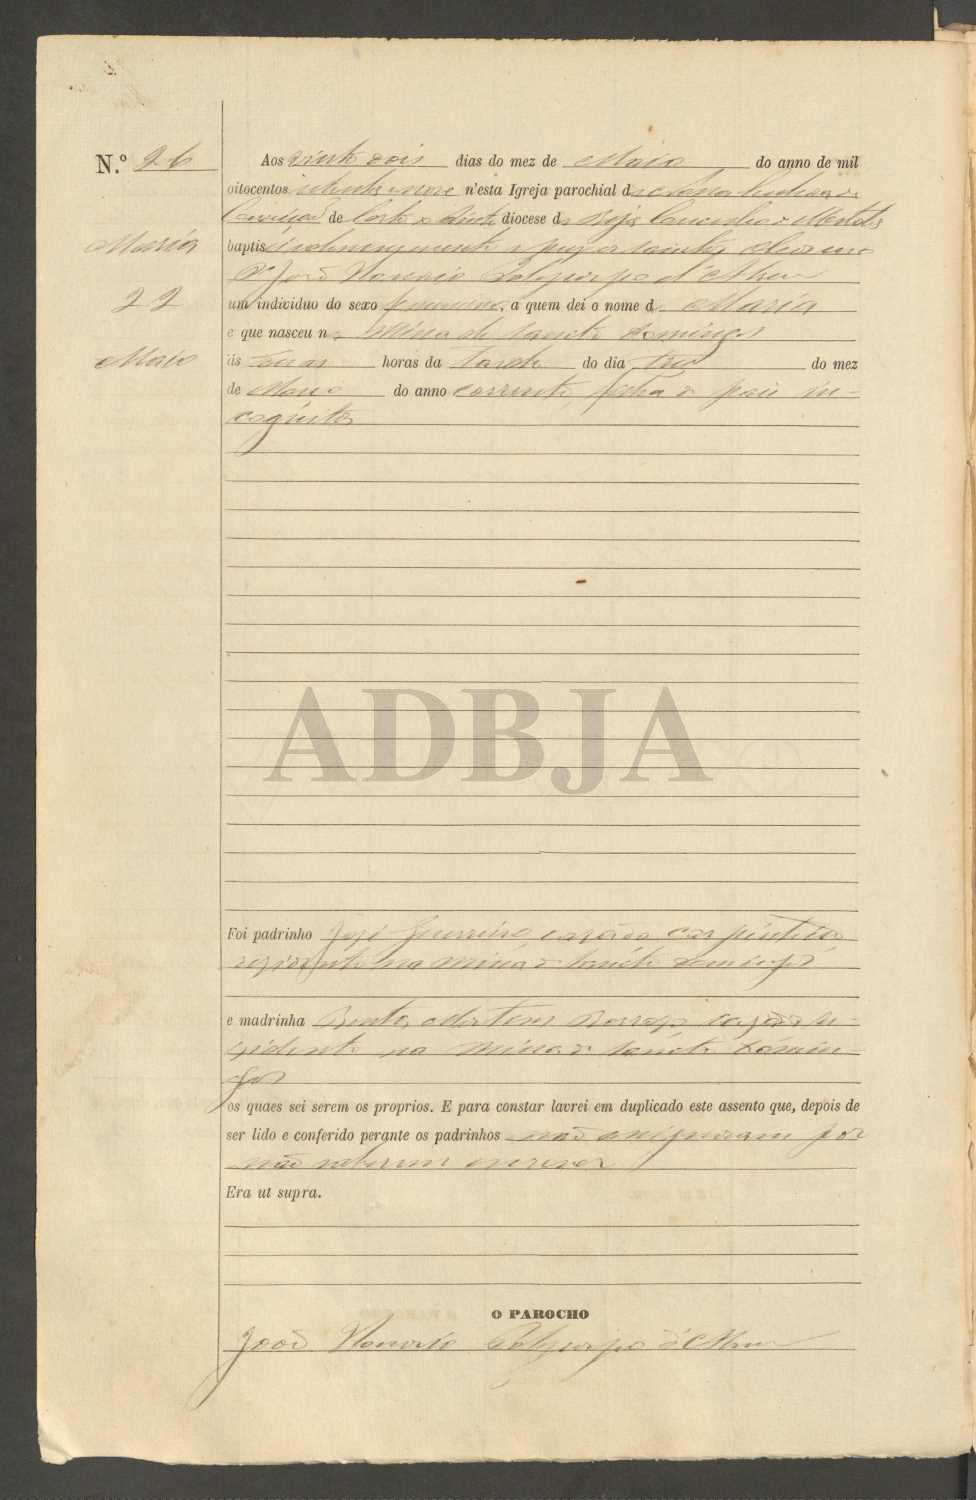 N.º 26
Maria
22
Maio
Aos vinte dois dias do mez de Maio do anno de mil
oitocentos setenta e nove n'esta Igreja parochial d
Conceição de Corte do Pinto diocese de Beja Concelho de Mertola
baptisei solemnemente e puz os santos oleos eu
P.e João Honorio d'Abreu
um individuo do sexo femenino, a quem dei o nome de Maria
e que nasceu na Mina de Sancto Domingos
ás horas da tarde do dia tres do mez
de Maio do anno corrente, filha de pais in-
cognitos
ADBJA
Foi padrinho José Guerreiro casado carpinteiro
residente na Mina de Sancto Domingos
e madrinha Bento Martins casado re-
sidente na Mina de Sancto Domin-
gos
os quaes sei serem os proprios. E para constar lavrei em duplicado este assento que, depois de
ser lido e conferido perante os padrinhos não assignaram por
não saberem escrever
Era ut supra.
O PAROCHO
João Honorio d'Abreu